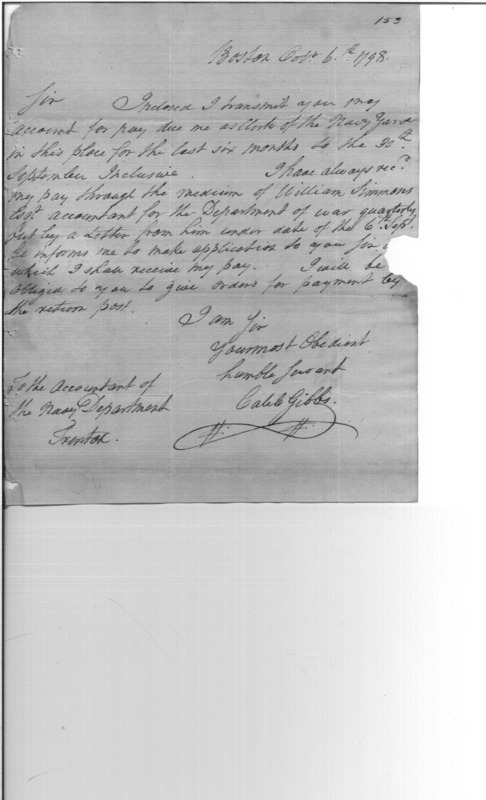 153
Boston Octr 6.th 1798.
Sir Inclosed I transmit you my
account for pay due me as Clerk of the Navy Yard
in this place for the last six months to the 30th
September Inclusive. I have always recd
my pay through the medium of William Simmons
Esqr accountant for the Department of war quarterly
but by a Letter from him under date of the 6th Sepr
he informs me to make application to you Sir
which I shall receive my pay. I will be
obliged to you to give orders for payment by
the return post.
I am Sir
Your most Obedient
humble Servant
Caleb Gibbs.
To the Accountant of
the Navy Department
Trenton.